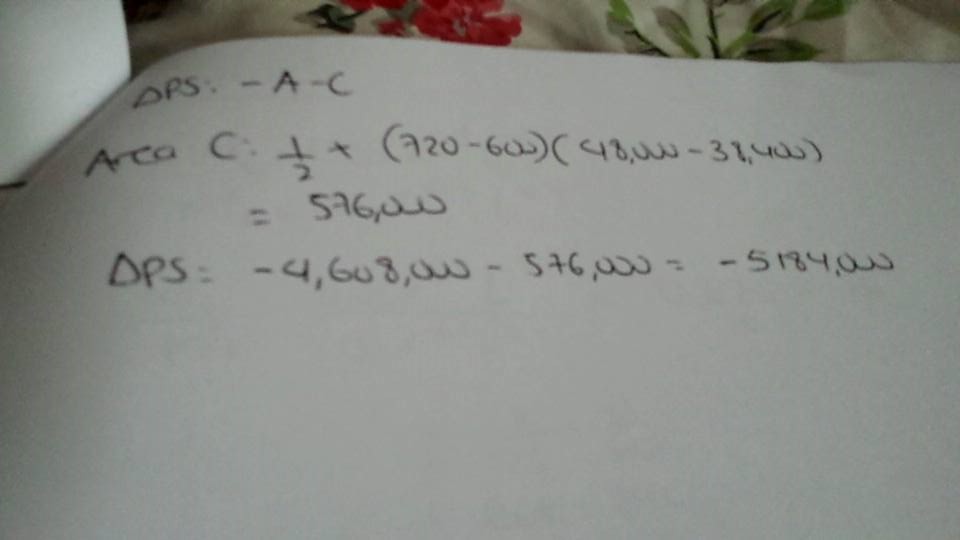 ΔPS: - A - C
Area C: 1/2 * (720-600)(48,000-38,400)
= 576,000
ΔPS= -4,608,000 - 576,000 = -5184,000